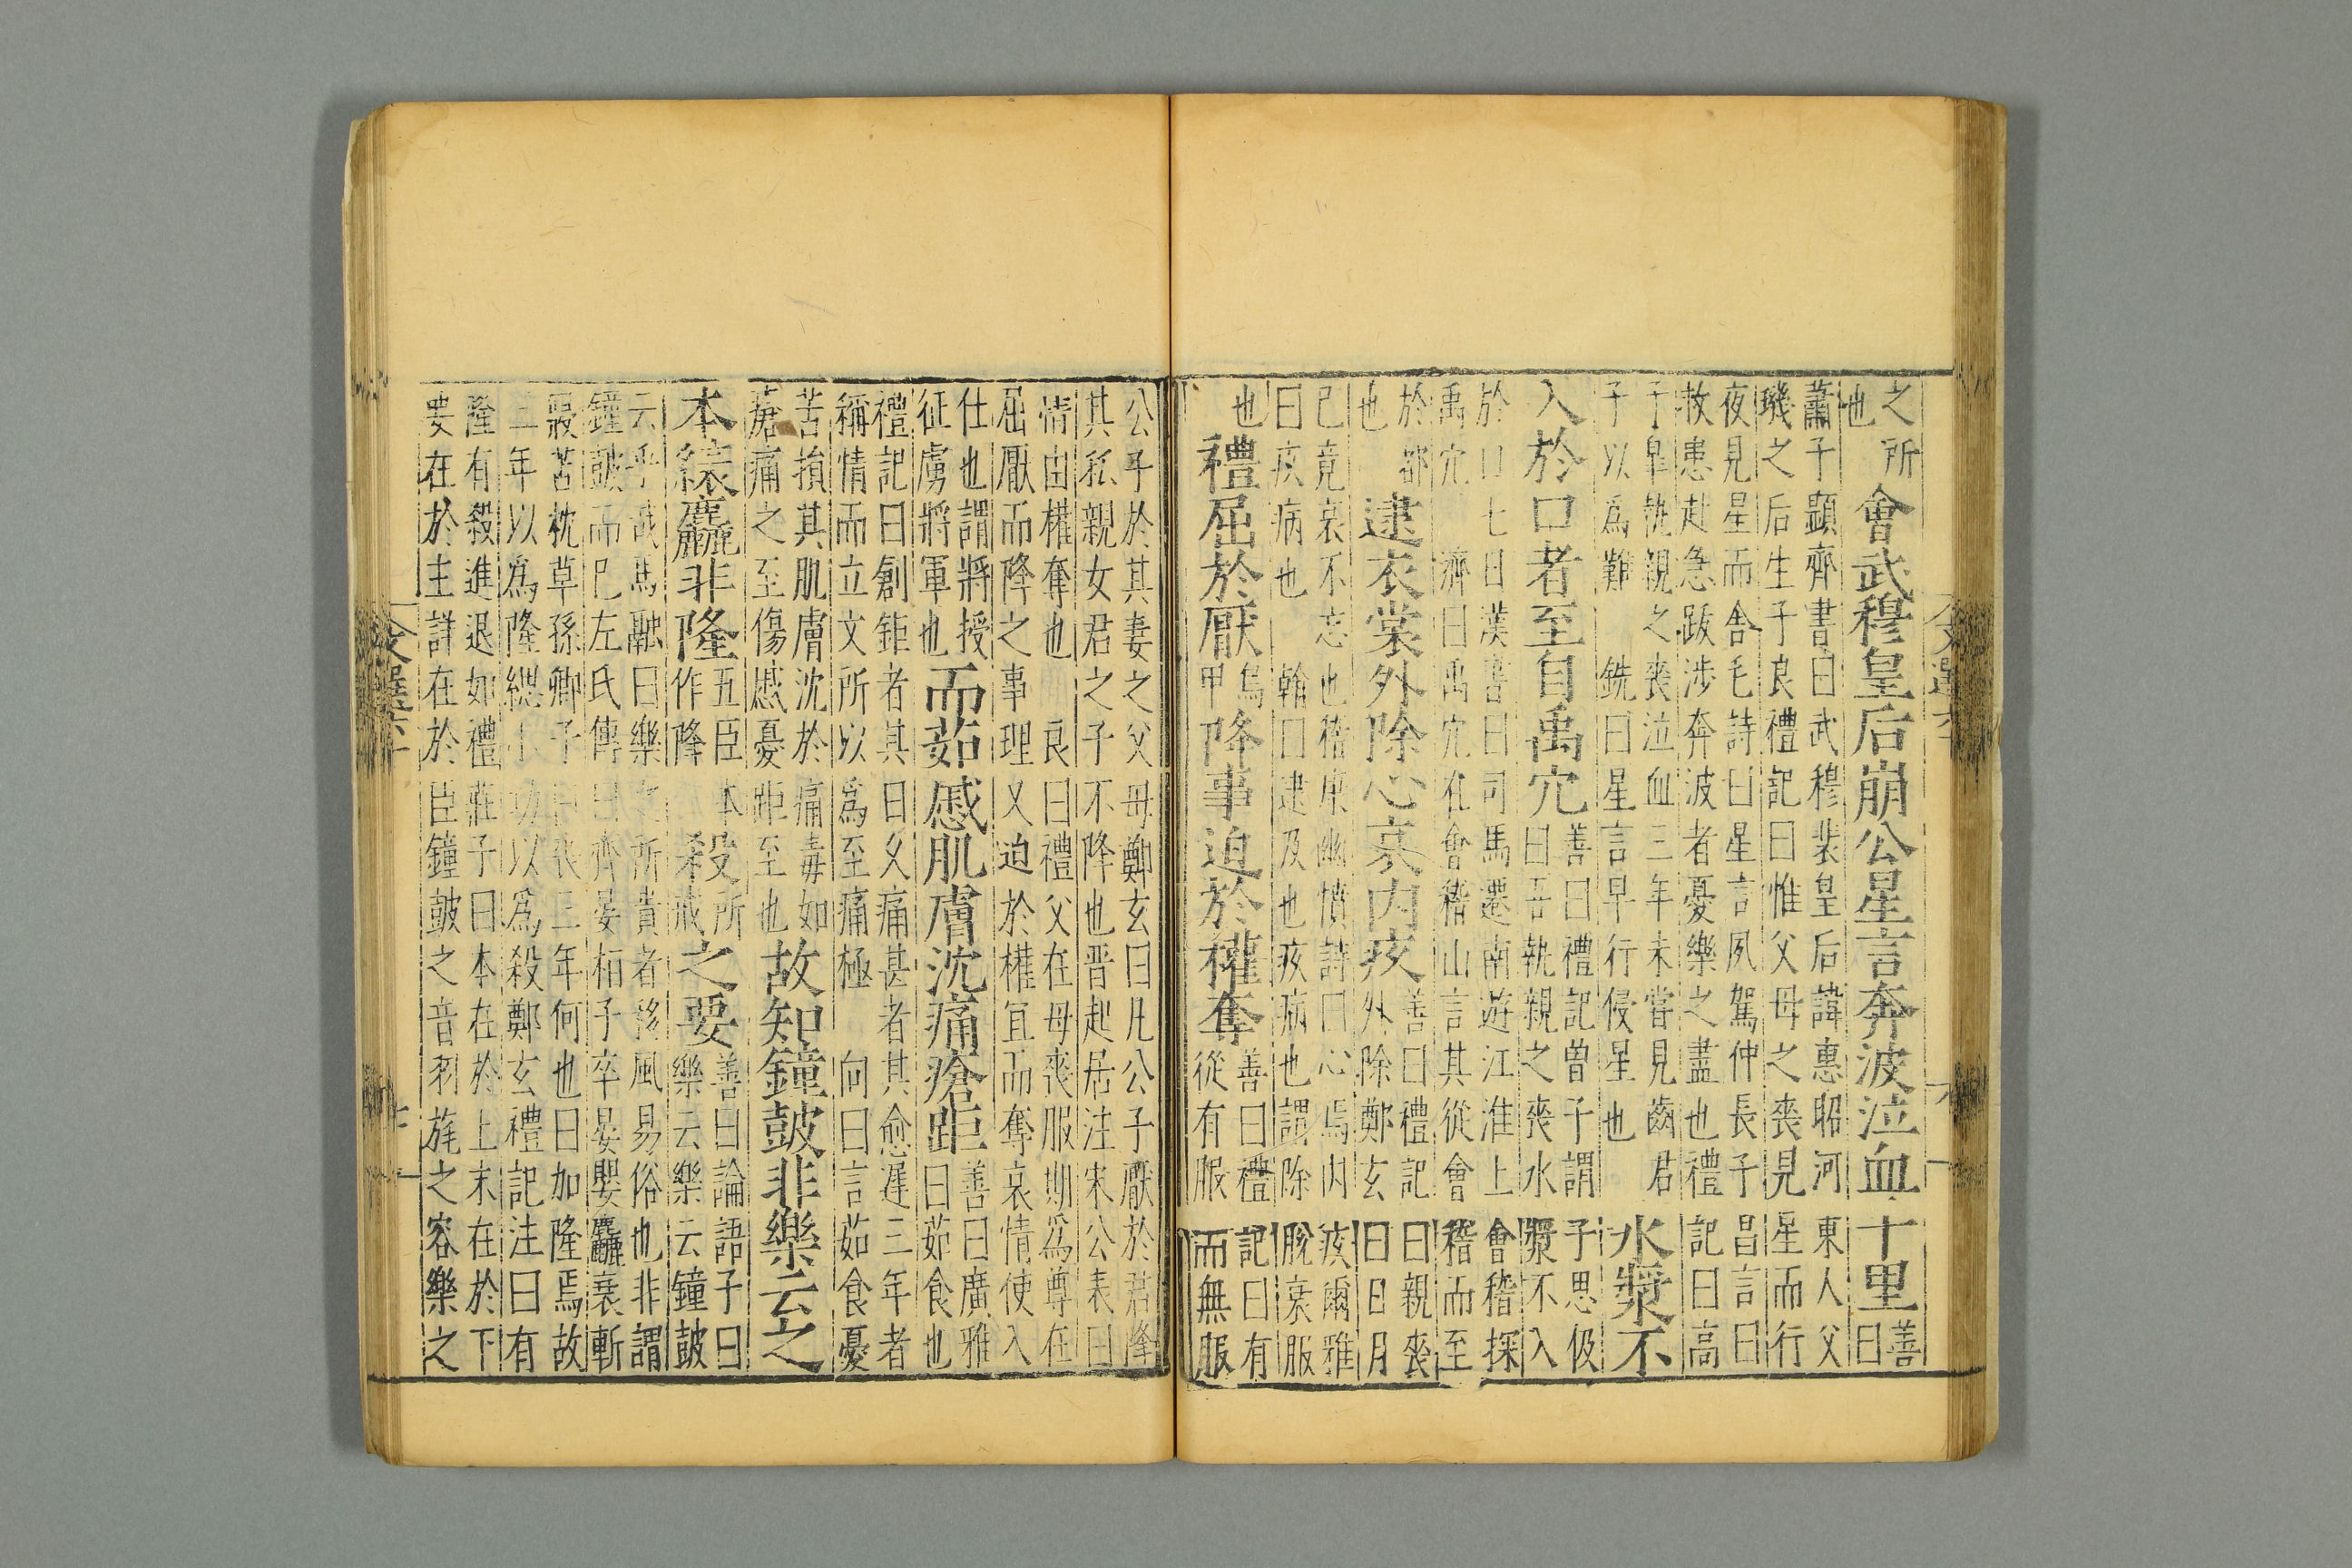 之所
也
會武穆皇后崩公星言奔波泣血十里善
曰
蕭子顯齊書曰武穆裴皇后諱惠昭河東人父
璣之后生子良禮記曰惟父母之喪見星而行
夜見星而舎毛詩曰星言夙駕仲長子昌言曰
救患赴急跋涉奔波者憂樂之盡也禮記曰高
子皐執親之喪泣血三年未嘗見齒君
子以爲難 銑曰星言早行侵星也
水漿不
入於口者至自禹穴
善曰禮記曾子謂子思伋
曰吾執親之喪水漿不入
於口七日漢書曰司馬遷南遊江淮上會稽探
禹穴 濟曰禹穴在會稽山言其從會稽而至
於都
也
逮衣裳外除心哀内疚
善曰禮記曰親喪
外除鄭玄曰日月
已竟哀不忘也嵇康幽憤詩曰心焉内疚爾雅
曰疚病也 翰曰逮及也疚病也謂除脫衰服
也
禮屈於厭烏
甲
降事迫於權奪
善曰禮記曰有
從有服而無服
公子於其妻之父母鄭玄曰凡公子厭於君降
其私親女君之子不降也晋起居注宋公表曰
情由權奪也 良曰禮父在母喪服期爲尊在
屈厭而降之事理又迫於權宜而奪哀情使入
仕也謂將授
征虜將軍也
而茹慼肌膚沈痛瘡距
善曰廣雅
曰茹食也
禮記曰創鉅者其日久痛甚者其愈遲三年者
稱情而立文所以爲至痛極 向曰言茹食憂
苦損其肌膚沈於痛毒如
瘡痛之至傷慼憂距至也
故知鐘鼓非樂云之
本縗麤非隆
五臣本
作降
殺所
戒
之要
善曰論語子曰
樂云樂云鐘鼓
云乎哉馬融曰樂之所貴者移風易俗也非謂
鐘鼓而已左氏傳曰齊晏桓子卒晏嬰麤衰斬
寢苫枕草孫卿子曰喪三年何也曰加隆焉故
三年以爲隆緦小功以爲殺鄭玄禮記注曰有
隆有殺進退如禮莊子曰本在於上末在於下
要在於主詳在於臣鐘鼓之音羽旄之容樂之